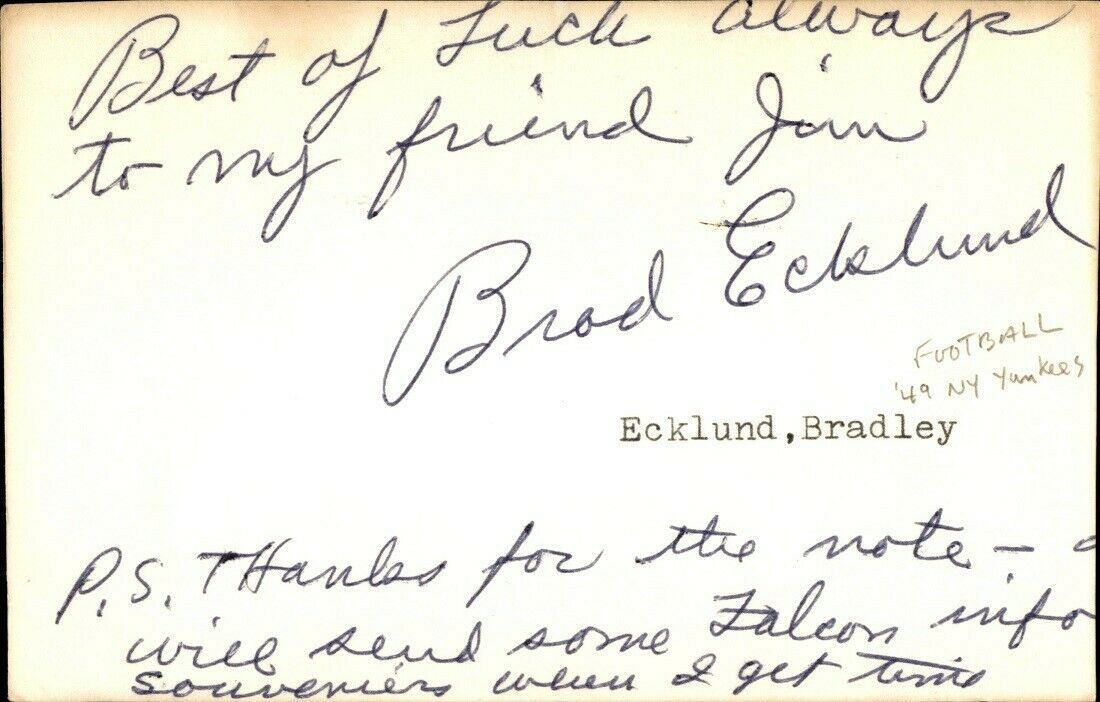 Best of Luck always
to my friend Jim
Brad Ecklund
FOOTBALL
'49 NY Yankees
Ecklund,Bradley
P.S. THanks for the note –
will send some Falcon info
souveniers when I get time